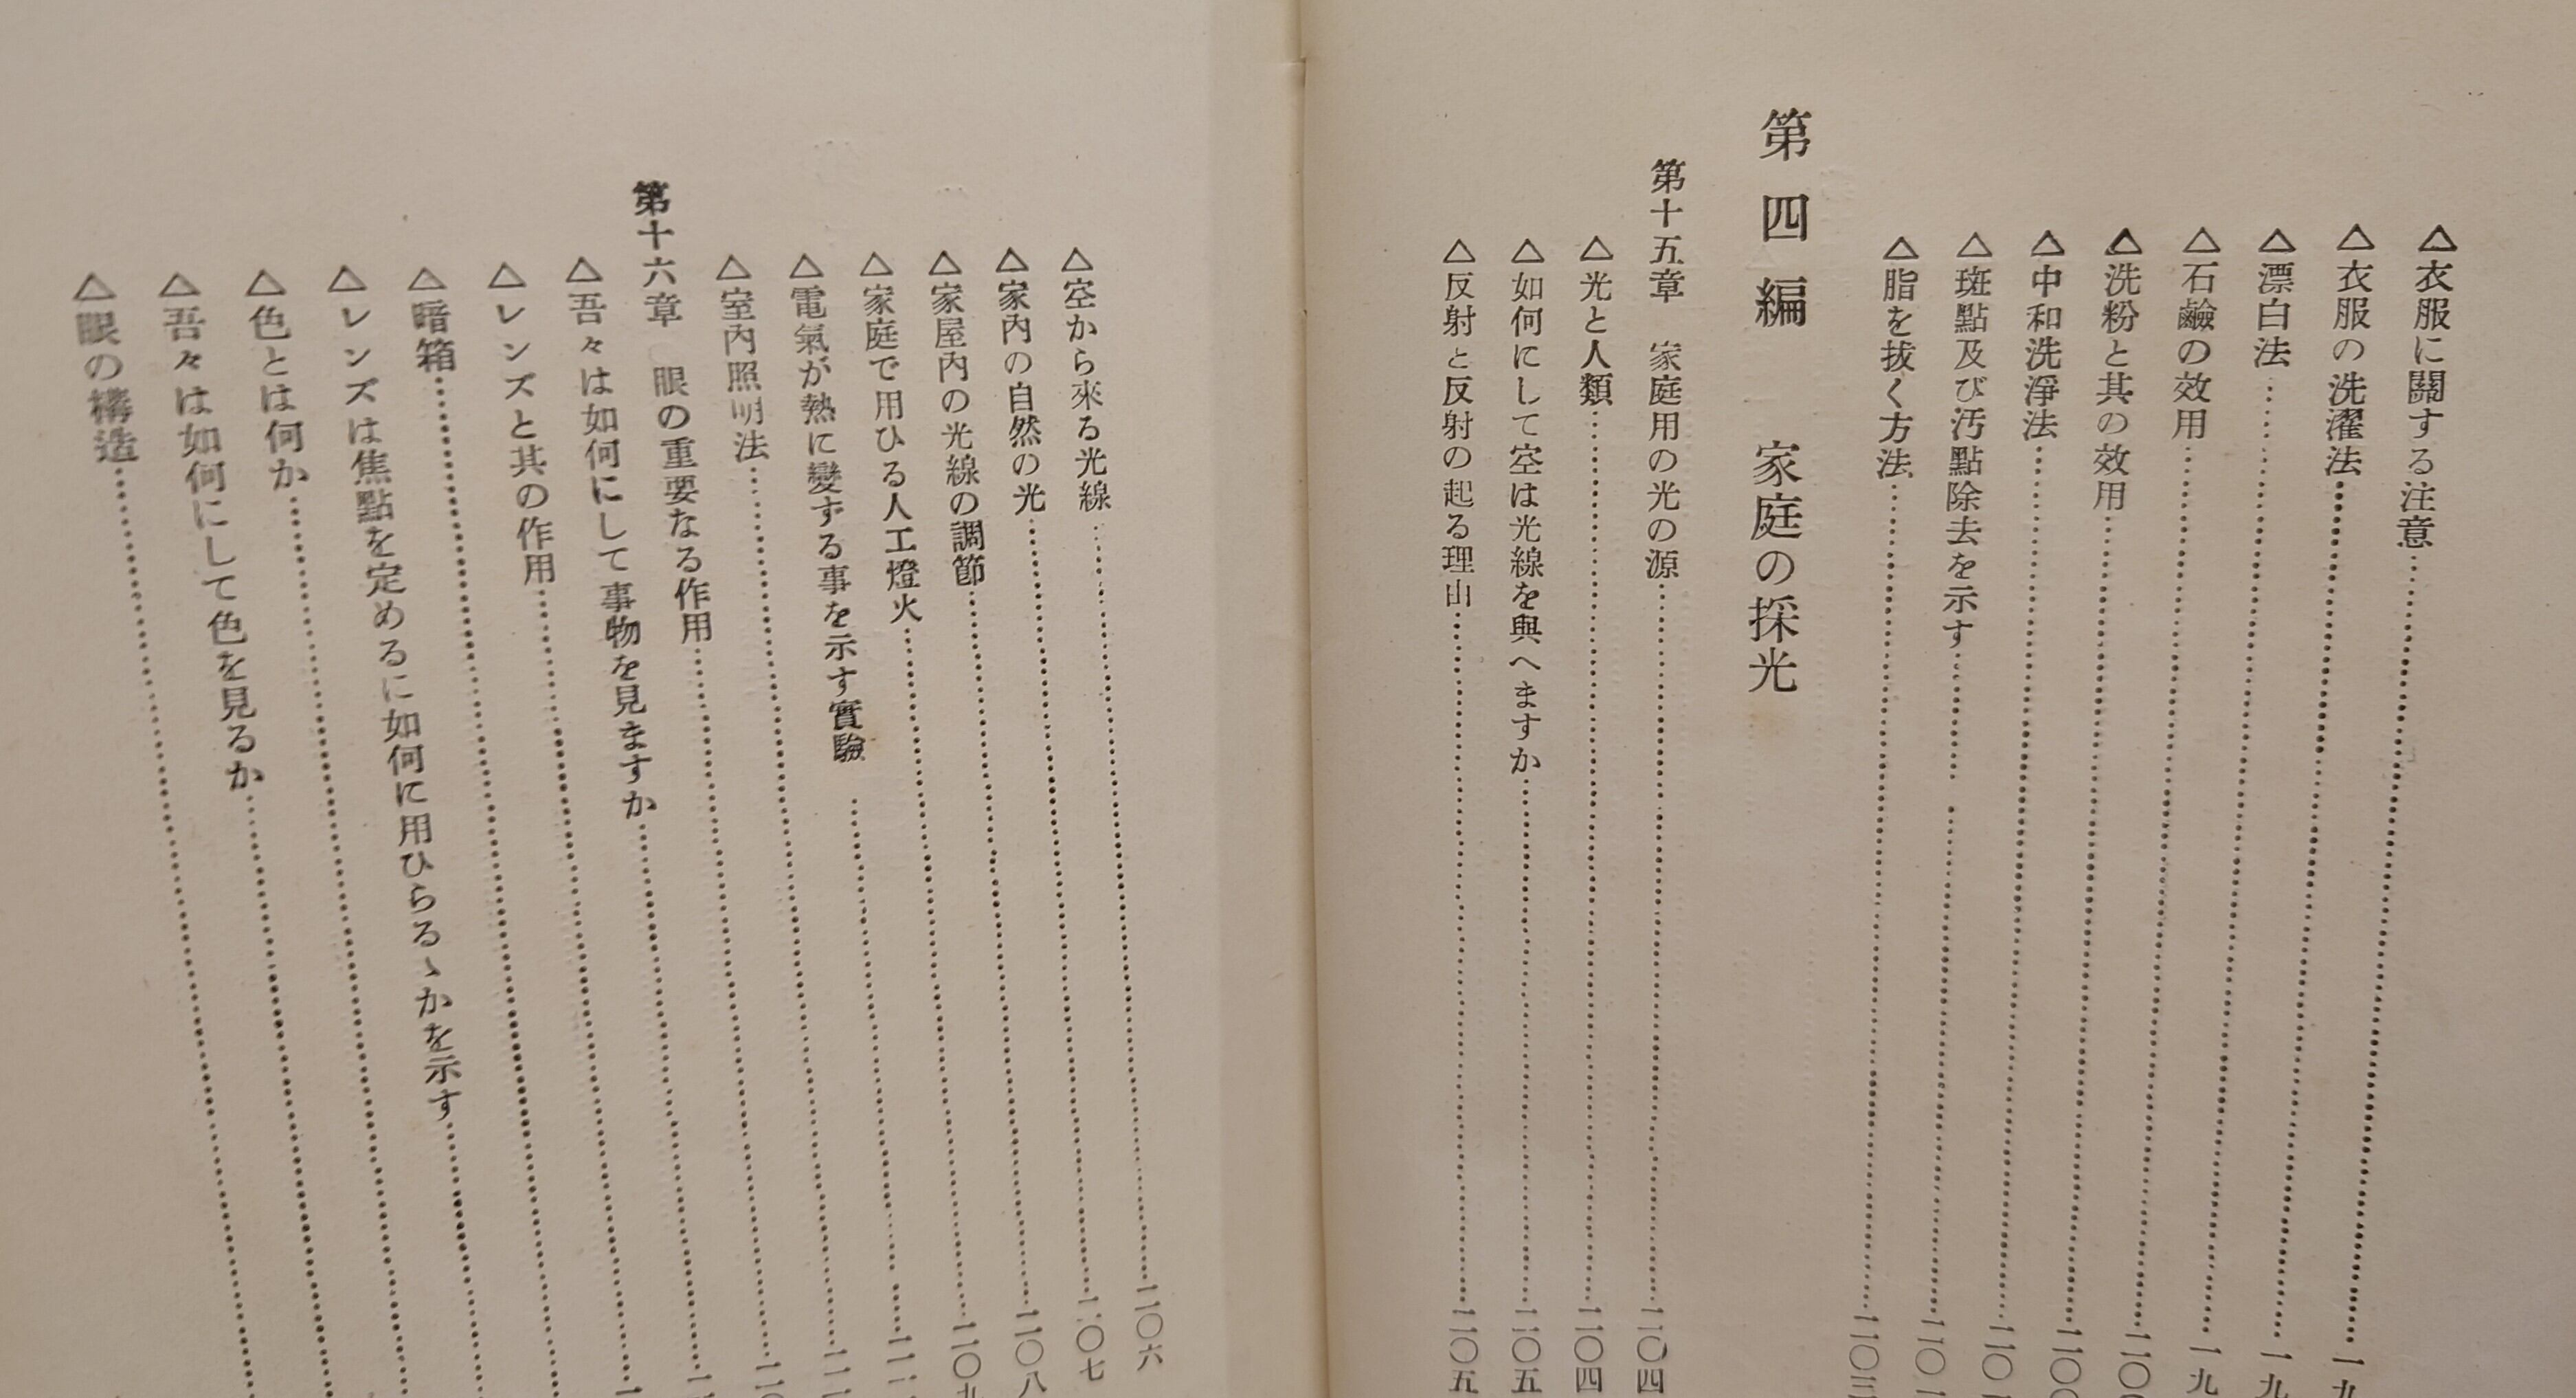 △衣服に關する注意
△衣服の洗濯法
△漂白法
△石鹼の效用
△洗粉と其の效用
△中和洗淨法
△斑點及び汚點除去を示す
△脂を抜く方法
第四編 家庭の採光
第十五章 家庭用の光の源 二〇四
△光と人類 二〇四
△如何にして空は光線を與へますか 二〇五
△反射と反射の起る理由 二〇五
△空から來る光線 二〇六
△家內の自然の光 二〇七
△家屋內の光線の調節 二〇八
△家庭で用ひる人工燈火 二〇九
△電氣が熱に變ずる事を示す實驗
△室內照明法
第十六章 眼の重要なる作用
△吾々は如何にして事物を見ますか
△レンズと其の作用
△暗箱
△レンズは焦點を定めるに如何に用ひらるゝかを示す
△色とは何か
△吾々は如何にして色を見るか
△眼の構造